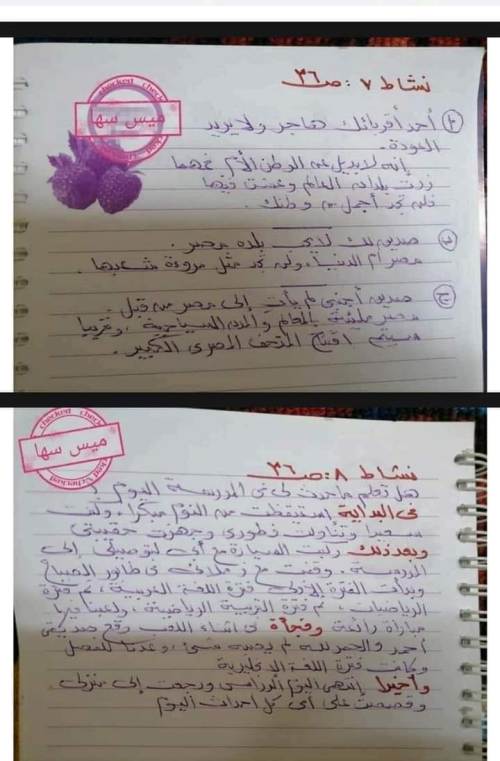 نشاط ٧ : ص٣٦
checked check
ميس سها
أ) أحد أقربائك هاجر ولا يريد
العودة.
إنه لا بديل عن الوطن الأم فمهما
زرت بلدان العالم وعشت فيها
فلن تجد أجمل من وطنك.
ب) صديق لك لا يحب بلده مصر.
مصر أم الدنيا، ولن تجد مثل مروءة شعبها.
ج) صديق أجنبي لم يأت إلى مصر من قبل.
مصر مليئة بالمعالم والمدن السياحية، وقريبا
سيتم افتتاح المتحف المصرى الكبير.
checked check
ميس سها
checked
نشاط ٨ : ص٣٦
هل تعلم ما حدث لى فى المدرسة اليوم ؟
فى البداية استيقظت من النوم مبكرا، وكنت
سعيدا وتناولت فطورى وجهزت حقيبتى
وبعد ذلك ركبت السيارة مع أبى ليوصلنى إلى
المدرسة. وقفت مع زملائى فى طابور الصباح
وبدأت الفترة الأولى فترة اللغة العربية، ثم فترة
الرياضيات، ثم فترة التربية الرياضية، ولعبنا فيها
مباراة رائعة وفجأة فى أثناء اللعب وقع صديقى
أحمد والحمد لله لم يصبه شىء، وعدنا للفصل
وكانت فترة اللغة الإنجليزية
وأخيرا انتهى اليوم الدراسى ورجعت إلى منزلى
وقصصت على أمى كل أحداث اليوم